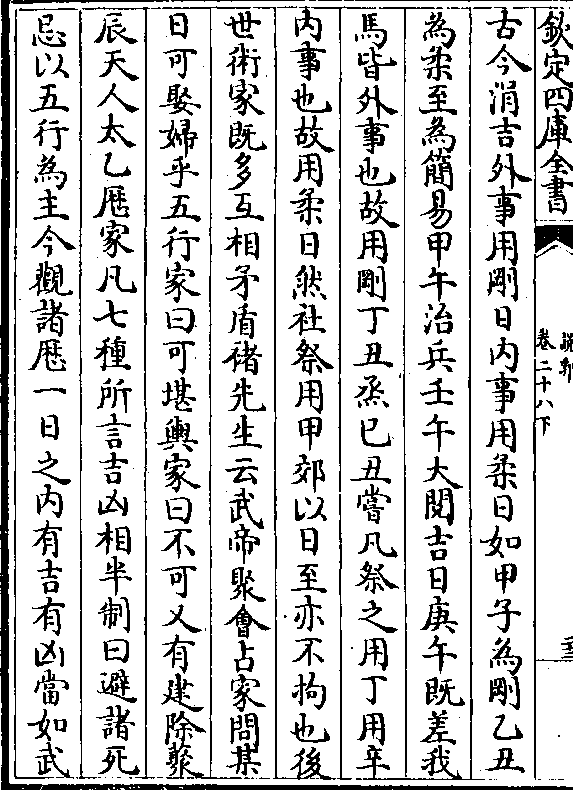 欽定四庫全書
說郛
卷二十八下
古今涓吉外事用剛日内事用柔日如甲子為剛乙丑
為柔至為簡易甲午治兵壬午大閱吉日庚午既差我
馬皆外事也故用剛丁丑烝已丑嘗凡祭之用丁用辛
内事也故用柔日然社祭用甲郊以日至亦不拘也後
世術家既多互相矛盾禇先生云武帝聚會占家問某
日可娶婦乎五行家曰可堪輿家曰不可又有建除藂
辰天人太乙厯家凡七種所言吉凶相半制曰避諸死
忌以五行為主今觀諸厯一日之内有吉有凶當如武